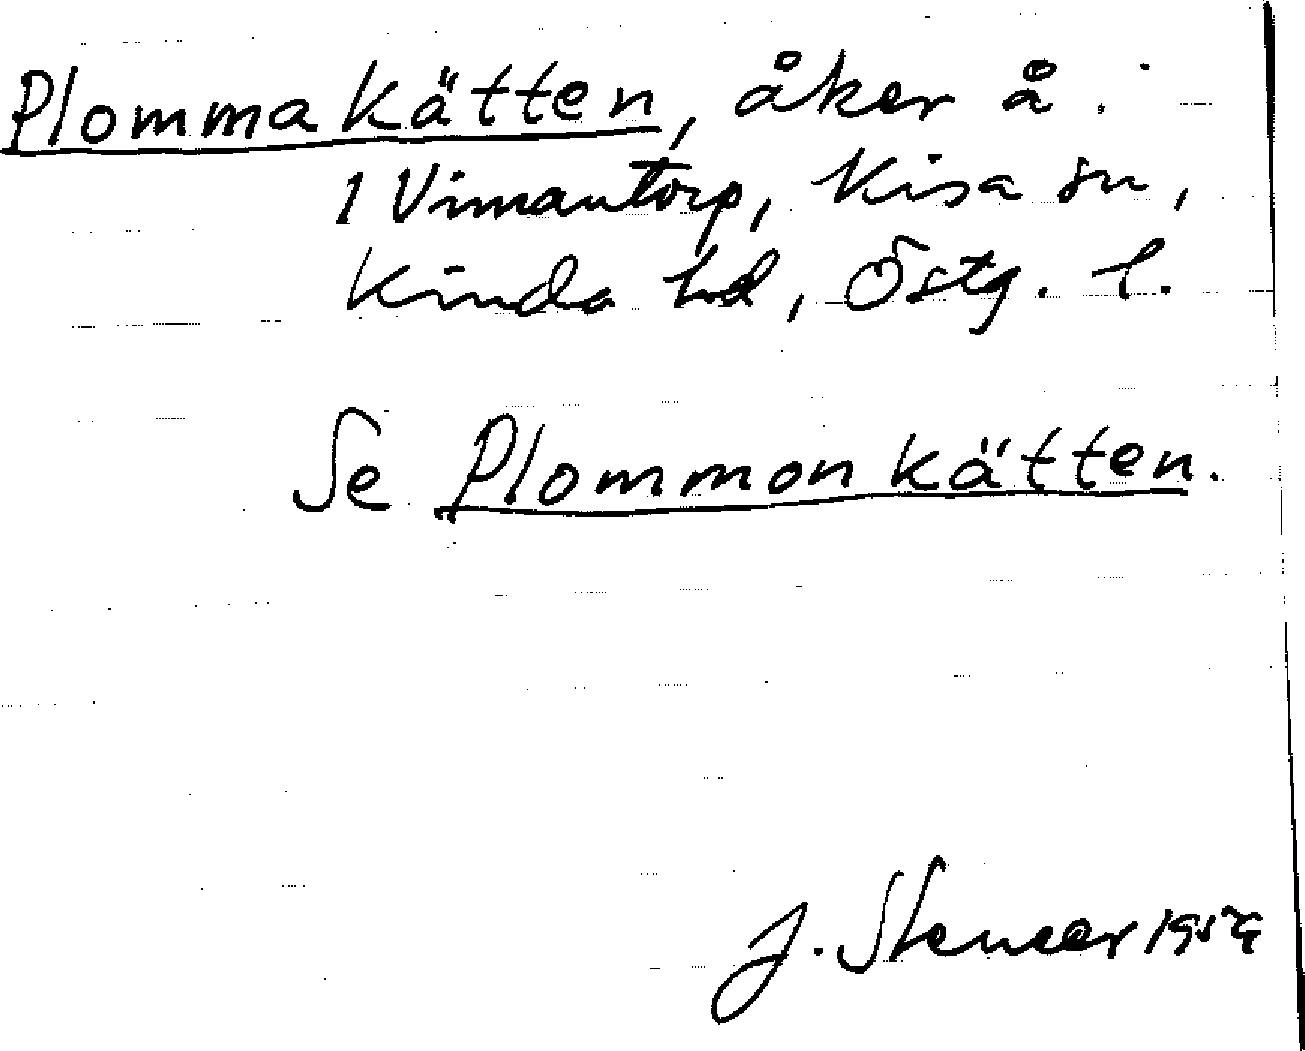 Plommakätten, åker å.
1 Vimantorp, Kisa sn,
Kinda hd, Östg. l.
Se Plommonkätten.
J. Stencer